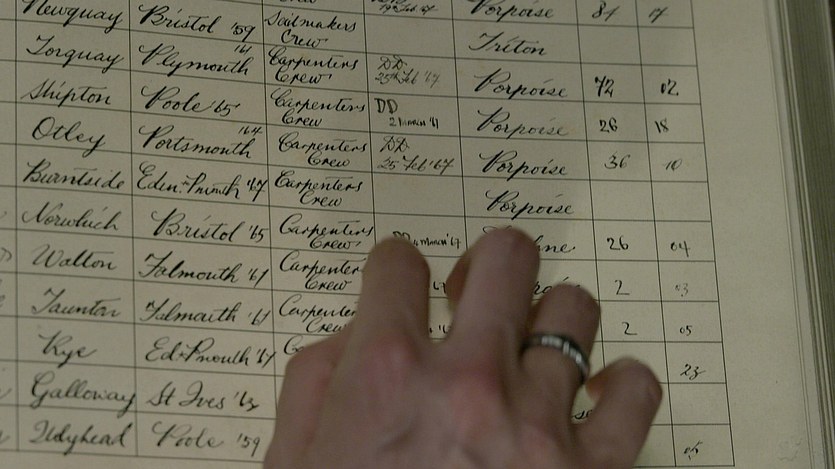 Newquay Bristol '59 Sailmakers Crew Porpoise 81
Torquay Plymouth '61 Carpenters Crew DD 25th Feb '67 Triton
Shipton Poole '65 Carpenters Crew DD 2 March '67 Porpoise 72 02
Otley Portsmouth '64 Carpenters Crew DD 25 Feb '67 Porpoise 26 18
Burntside Carpenters Crew Porpoise 36 10
Norwhich Bristol '65 Carpenters Crew DD March '67 Porpoise
Walton Falmouth '61 Carpenter Crew 26 04
Taunton Falmouth '61 Carpenter Crew 2 03
Rye 2 05
Galloway St Ives '63 23
Poole '59 05